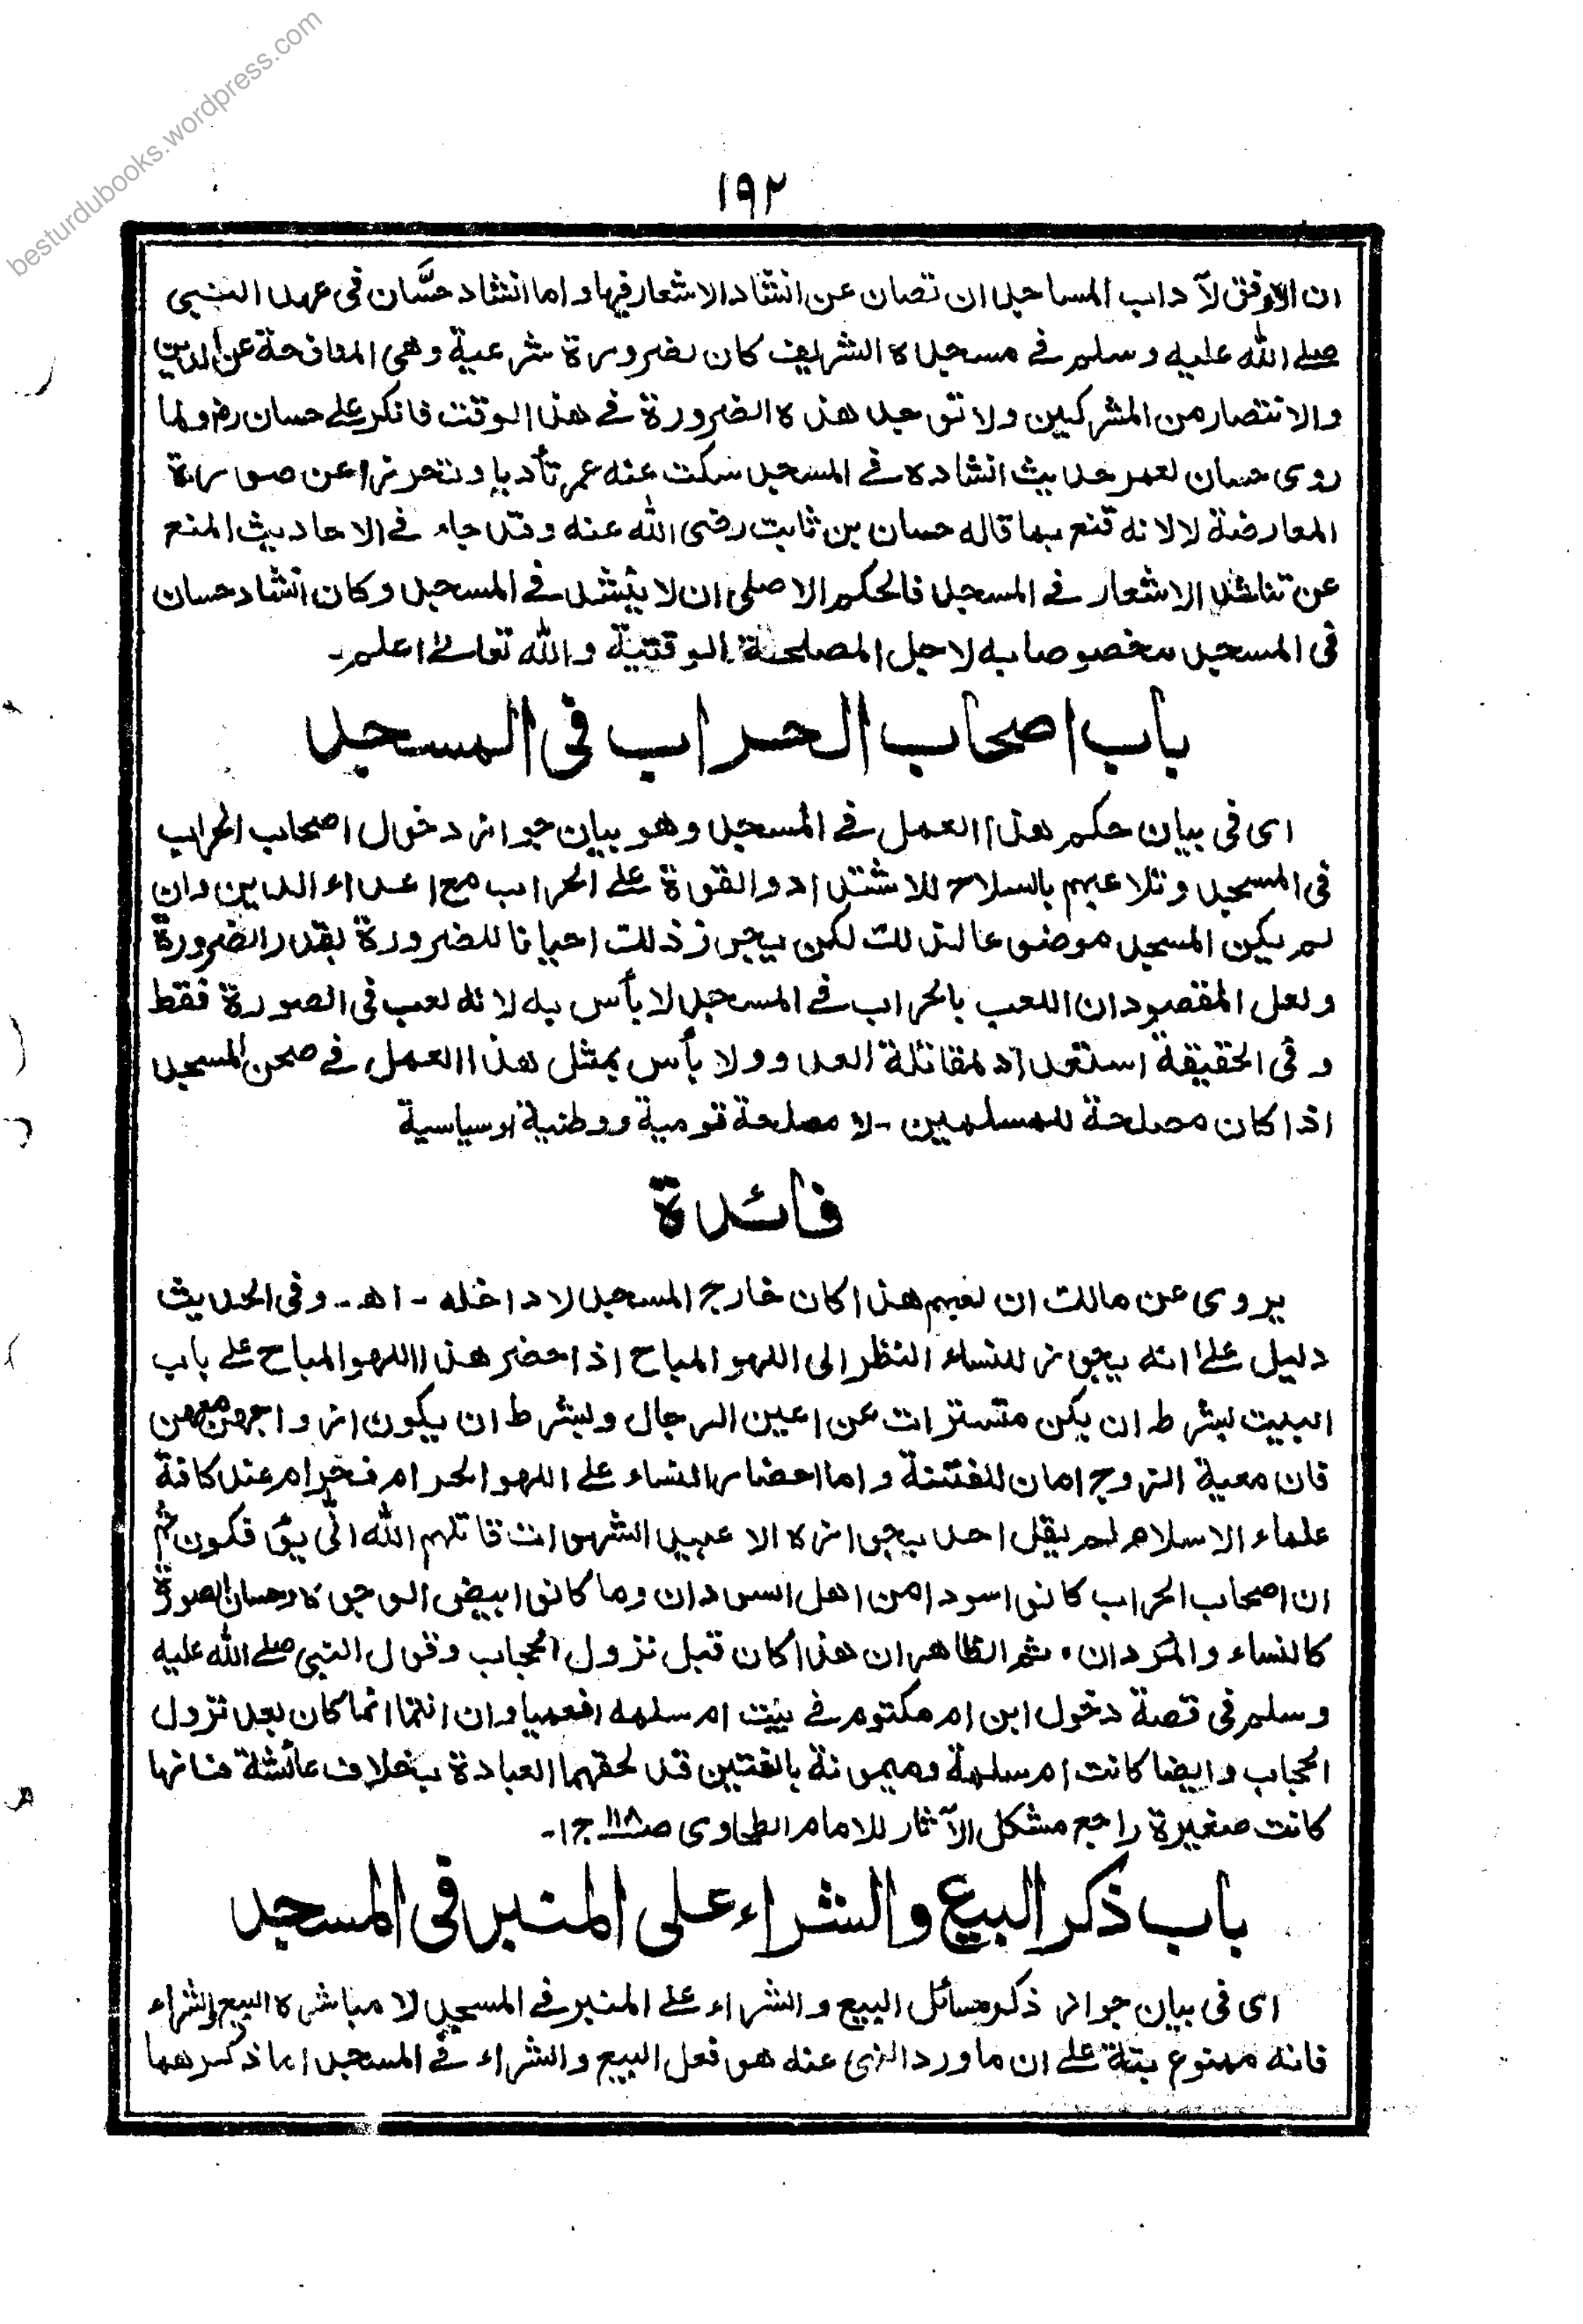 besturdubooks.wordpress.com
١٩٢
ان الاوفق لآداب المساجد ان تصان عن انشاد الاشعار فيها و اما انشاد حسَّان فى عهد النبى
صلے الله عليه وسلم فے مسجده الشريف كان لضرورة شرعية وهى المنافحة عن الدين
والانتصار من المشركين ولا توجد هذه الضرورة فے هذا الوقت فانكر علے حسان رض ولما
روى حسان لعمر حديث انشاده فے المسجد سكت عنه عمر تأدبا و تحرزا عن صورة
المعارضة لا لانه قنع بما قاله حسان بن ثابت رضى الله عنه وقد جاء فے الاحاديث المنع
عن تناشد الاشعار فے المسجد فالحكم الاصلى ان لا ينشد فے المسجد وكان انشاد حسان
فى المسجد مخصوصا به لاجل المصلحة الوقتية والله تعالےٰ اعلم۔
باب اصحاب الحراب فى المسجد
اى فى بيان حكم هذا العمل فے المسجد وهو بيان جواز دخول اصحاب الحراب
فى المسجد وتلاعبهم بالسلاح للاشتداد والقوة علے الحراب مع اعداء الدين وان
لم يكن المسجد موضوعا لذلك لكن يجوز ذلك احيانا للضرورة بقدر الضرورة
ولعل المقصود ان اللعب بالحراب فے المسجد لا بأس به لانه لعب فى الصورة فقط
وفى الحقيقة استعداد لمقاتلة العدو ولا بأس بمثل هذا العمل فے صحن المسجد
اذا كان مصلحة للمسلمين - لا مصلحة قومية ووطنية اوسياسية
فائدة
يروى عن مالك ان لعبهم هذا كان خارج المسجد لا داخله - اھ - وفى الحديث
دليل علےٰ انه يجوز للنساء النظر الى اللهو المباح اذا حضر هذا اللهو المباح علے باب
البيت بشرط ان يكن متسترات عن اعين الرجال وبشرط ان يكون ازواجهن معهن
فان معية الزوج امان للفتنة و اما احضار النساء علے اللهو الحرام فحرام عند كافة
علماء الاسلام لم يقل احد بجوازه الا عبيد الشهوات قاتلهم الله انّٰى يؤفكون ثم
ان اصحاب الحراب كانوا سودا من اهل السودان وما كانوا بيض الوجوه وحسان الصورة
كالنساء والمردان ٠ ثم الظاهر ان هذا كان قبل نزول الحجاب وقول النبى صلے الله عليه
وسلم فى قصة دخول ابن ام مكتوم فے بيت ام سلمه افعميا وان انتما انما كان بعد نزول
الحجاب وايضا كانت ام سلمة وميمونة بالغتين قد لحقهما العبادة بخلاف عائشة فانها
كانت صغيرة راجع مشكل الآثار للامام الطحاوى ص١١٨ ج١۔
باب ذكر البيع والشراء على المنبر فى المسجد
اى فى بيان جواز ذكر مسائل البيع والشراء علے المنبر فے المسجد لا مباشرة البيع والشراء
فانه ممنوع بتة علے ان ما ورد النهى عنه هو فعل البيع والشراء فے المسجد اما ذكرهما